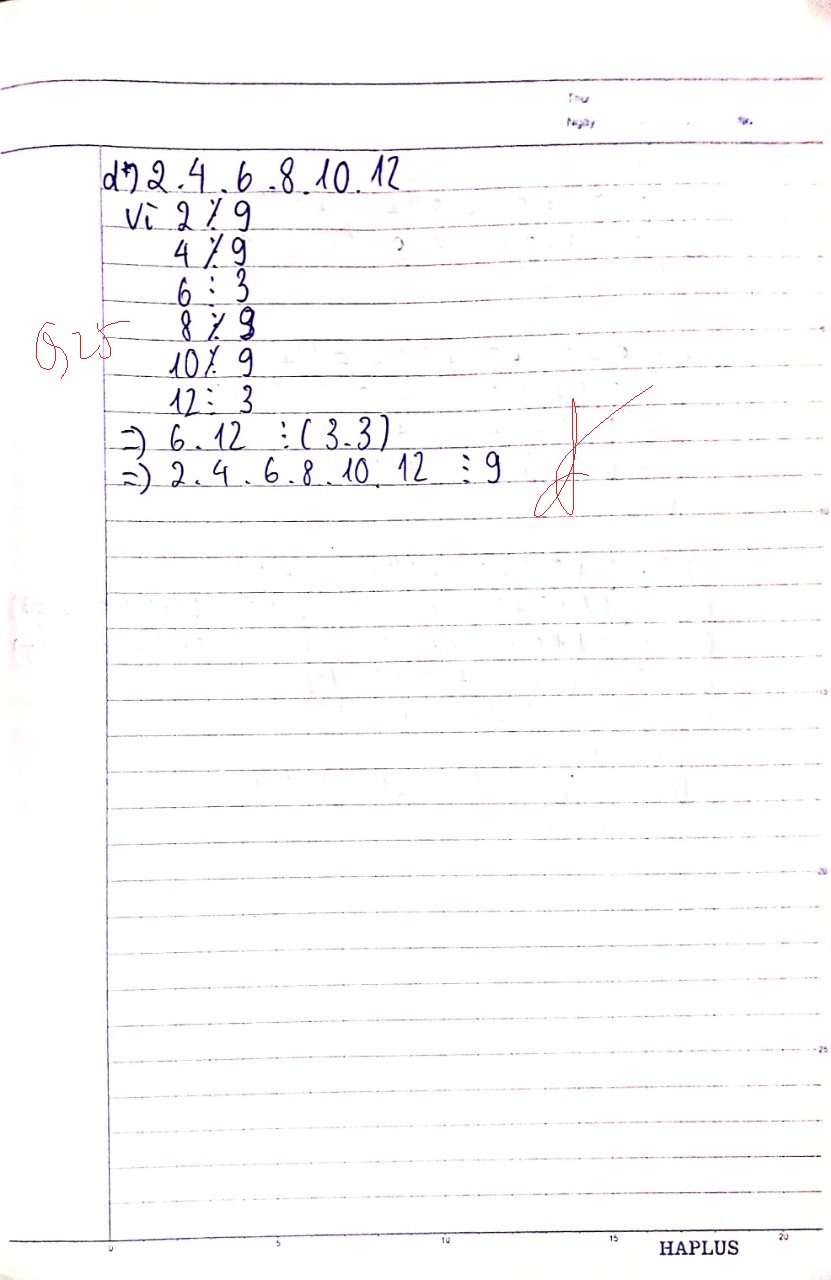 Thứ
Ngày
d*) 2.4.6.8.10.12
Vì 2 ⋮̸ 9
4 ⋮̸ 9
6 ⋮ 3
8 ⋮̸ 9
0,25
10 ⋮̸ 9
12 ⋮ 3
=) 6.12 ⋮ (3.3)
=) 2.4.6.8.10.12 ⋮ 9
5
10
15
20
25
0 5 10 15 20
HAPLUS